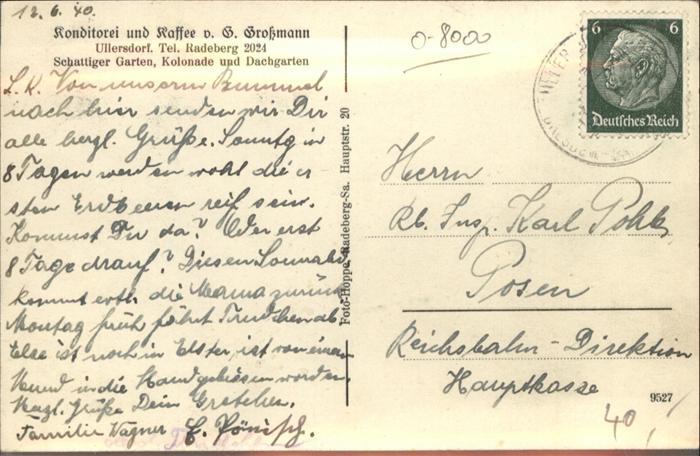 12.6.40.
Konditorei und Kaffee v. G. Großmann
Ullersdorf. Tel. Radeberg 2024
Schattiger Garten, Kolonade und Dachgarten
L. K. Von unserm Bummel
nach hier senden wir Dir
alle herzl. Grüße. Sonntg in
8 Tagen werden wohl die er-
sten Erdbeeren reif sein.
Kommst Du da? Oder erst
8 Tage drauf? Diesen Sonnab.
kommt evtl. die Mama zurück
Montag früh fährt Trudchen ab.
Else ist noch in Elster, ist von einem
Hund in die Hand gebissen worden.
Herzl. Grüße Dein Gretchen.
Familie Wagner
Foto-Hoppe, Radeberg-Sa. Hauptstr. 20
0-8000
6 6
Deutsches Reich
Herrn
Rb. Insp. Karl Pohle
Posen
Reichsbahn-Direktion
Hauptkasse
9527
40,